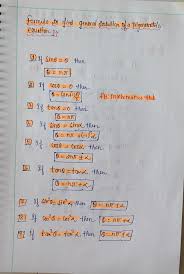 Formula to find general solution of a Trigonometric
Equation :-
1) If sinθ = 0 then
θ = nπ
2) If cosθ = 0 then
3) If tanθ = 0 then
θ = nπ
4) If sinθ = sinα then
5) If cosθ = cosα then
θ = 2nπ ± α
6) If tanθ = tanα then
θ = nπ + α
7) If sin²θ = sin²α then θ = nπ ± α
8) If cos²θ = cos²α then θ = nπ ± α
9) If tan²θ = tan²α then θ = nπ ± α